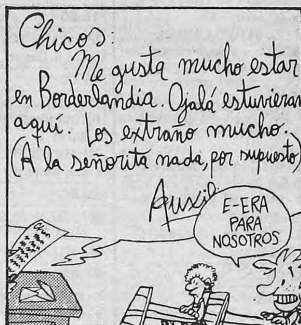 Chicos:
Me gusta mucho estar
en Borderlandia. Ojalá estuvieran
aquí. Los extraño mucho.
(A la señorita nada, por supuesto)
Auxil
E-ERA
PARA
NOSOTROS